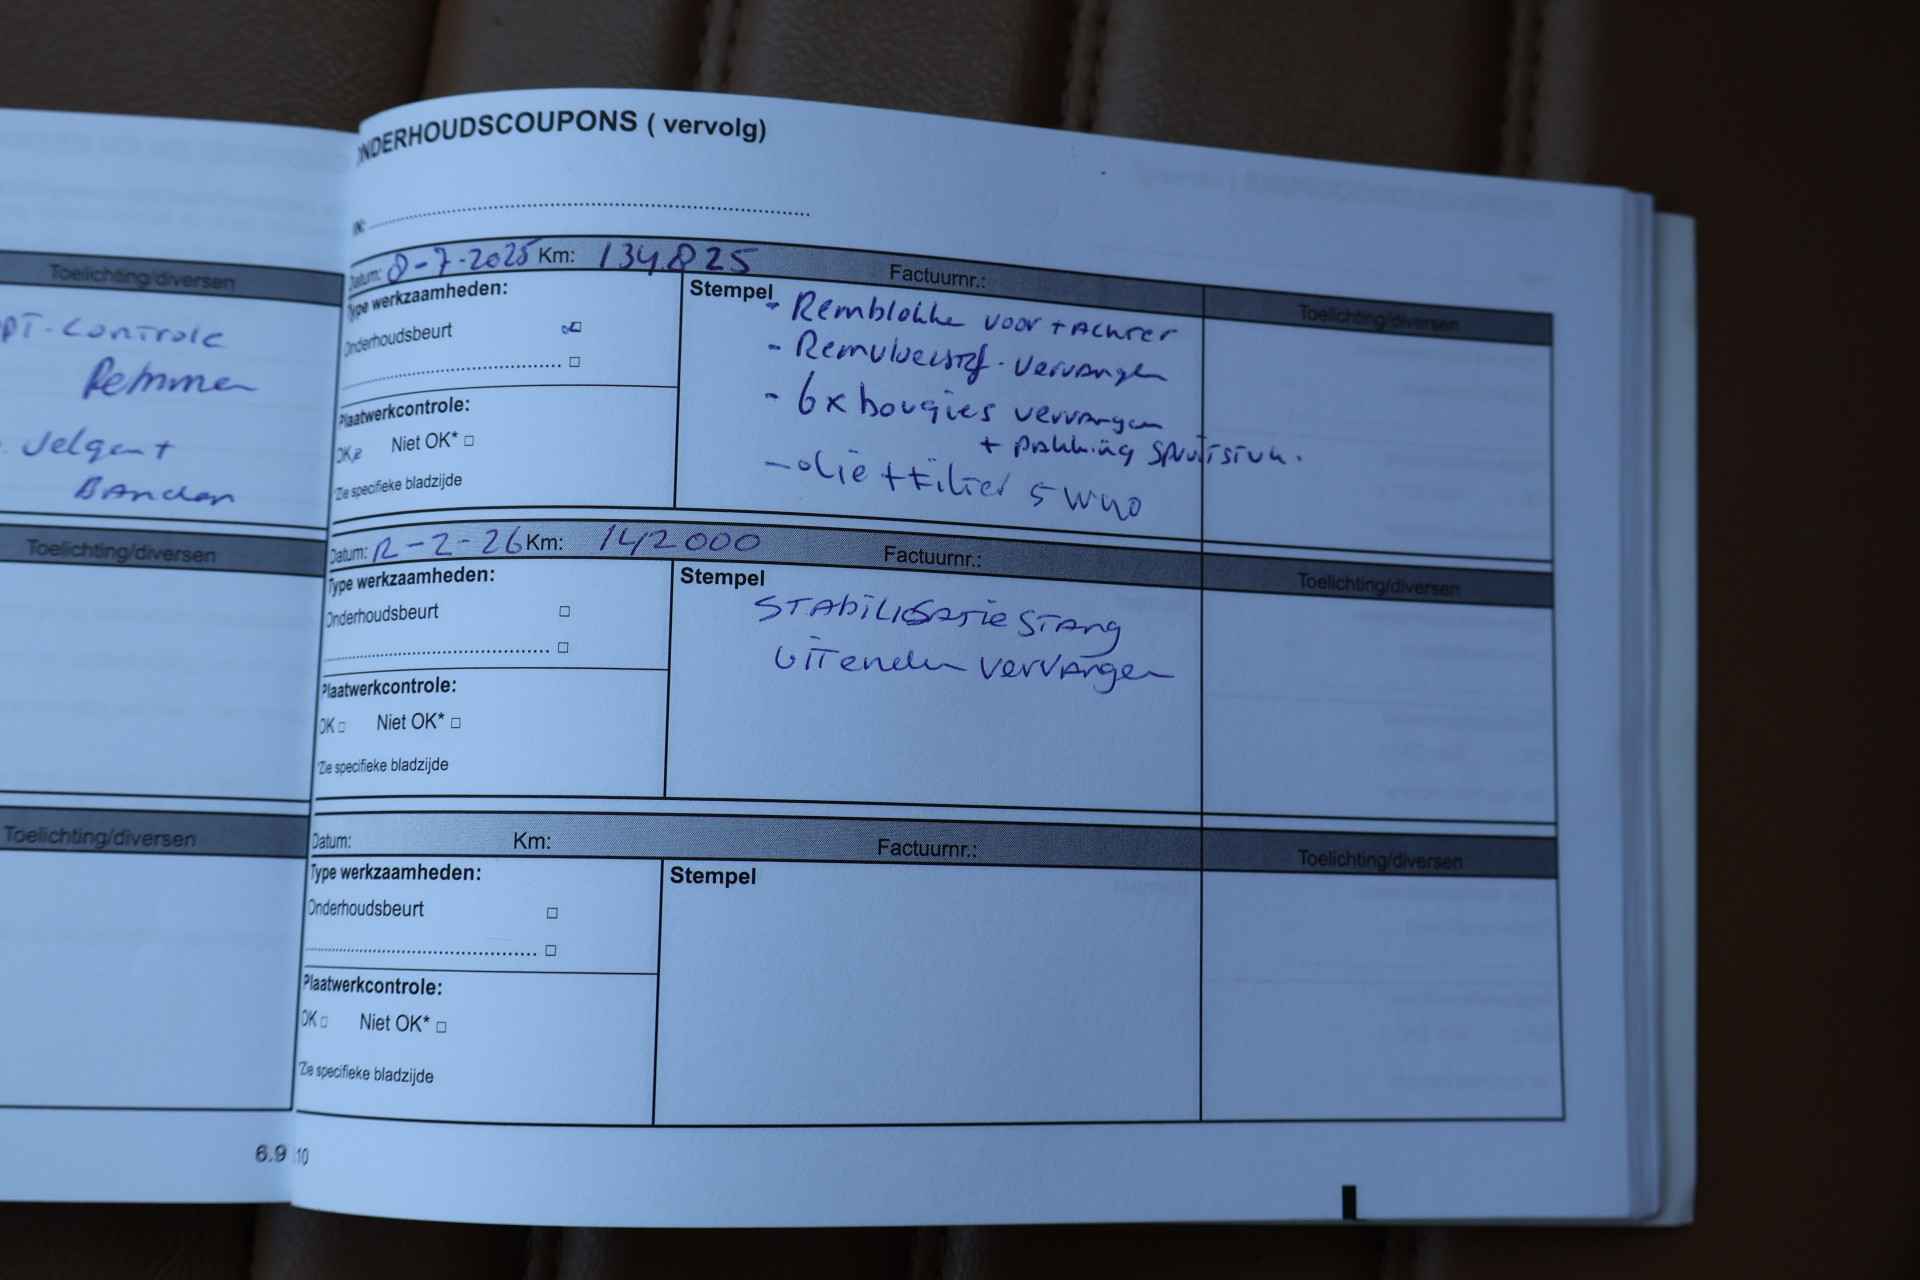 Toelichting/diversen
PT-Controle
Remmen
Velgen +
Banden
Toelichting/diversen
Toelichting/diversen
6.9
NDERHOUDSCOUPONS ( vervolg)
Datum: 8-7-2025 Km: 134825 Factuurnr.: Toelichting/diversen
Type werkzaamheden:
Stempel
- Remblokke voor + achter
Onderhoudsbeurt
- Remvloeistof. vervangen
- 6x bougies vervangen
+ pakking spruitstuk.
- olie + Filter 5W40
Plaatwerkcontrole:
OK Niet OK*
*Zie specifieke bladzijde
Datum: 12-2-26 Km: 142000 Factuurnr.: Toelichting/diversen
Type werkzaamheden:
Stempel
Stabilisatie stang
Onderhoudsbeurt
uiteinden vervangen
Plaatwerkcontrole:
OK Niet OK*
*Zie specifieke bladzijde
Datum: Km: Factuurnr.: Toelichting/diversen
Type werkzaamheden:
Stempel
Onderhoudsbeurt
Plaatwerkcontrole:
OK Niet OK*
*Zie specifieke bladzijde
10